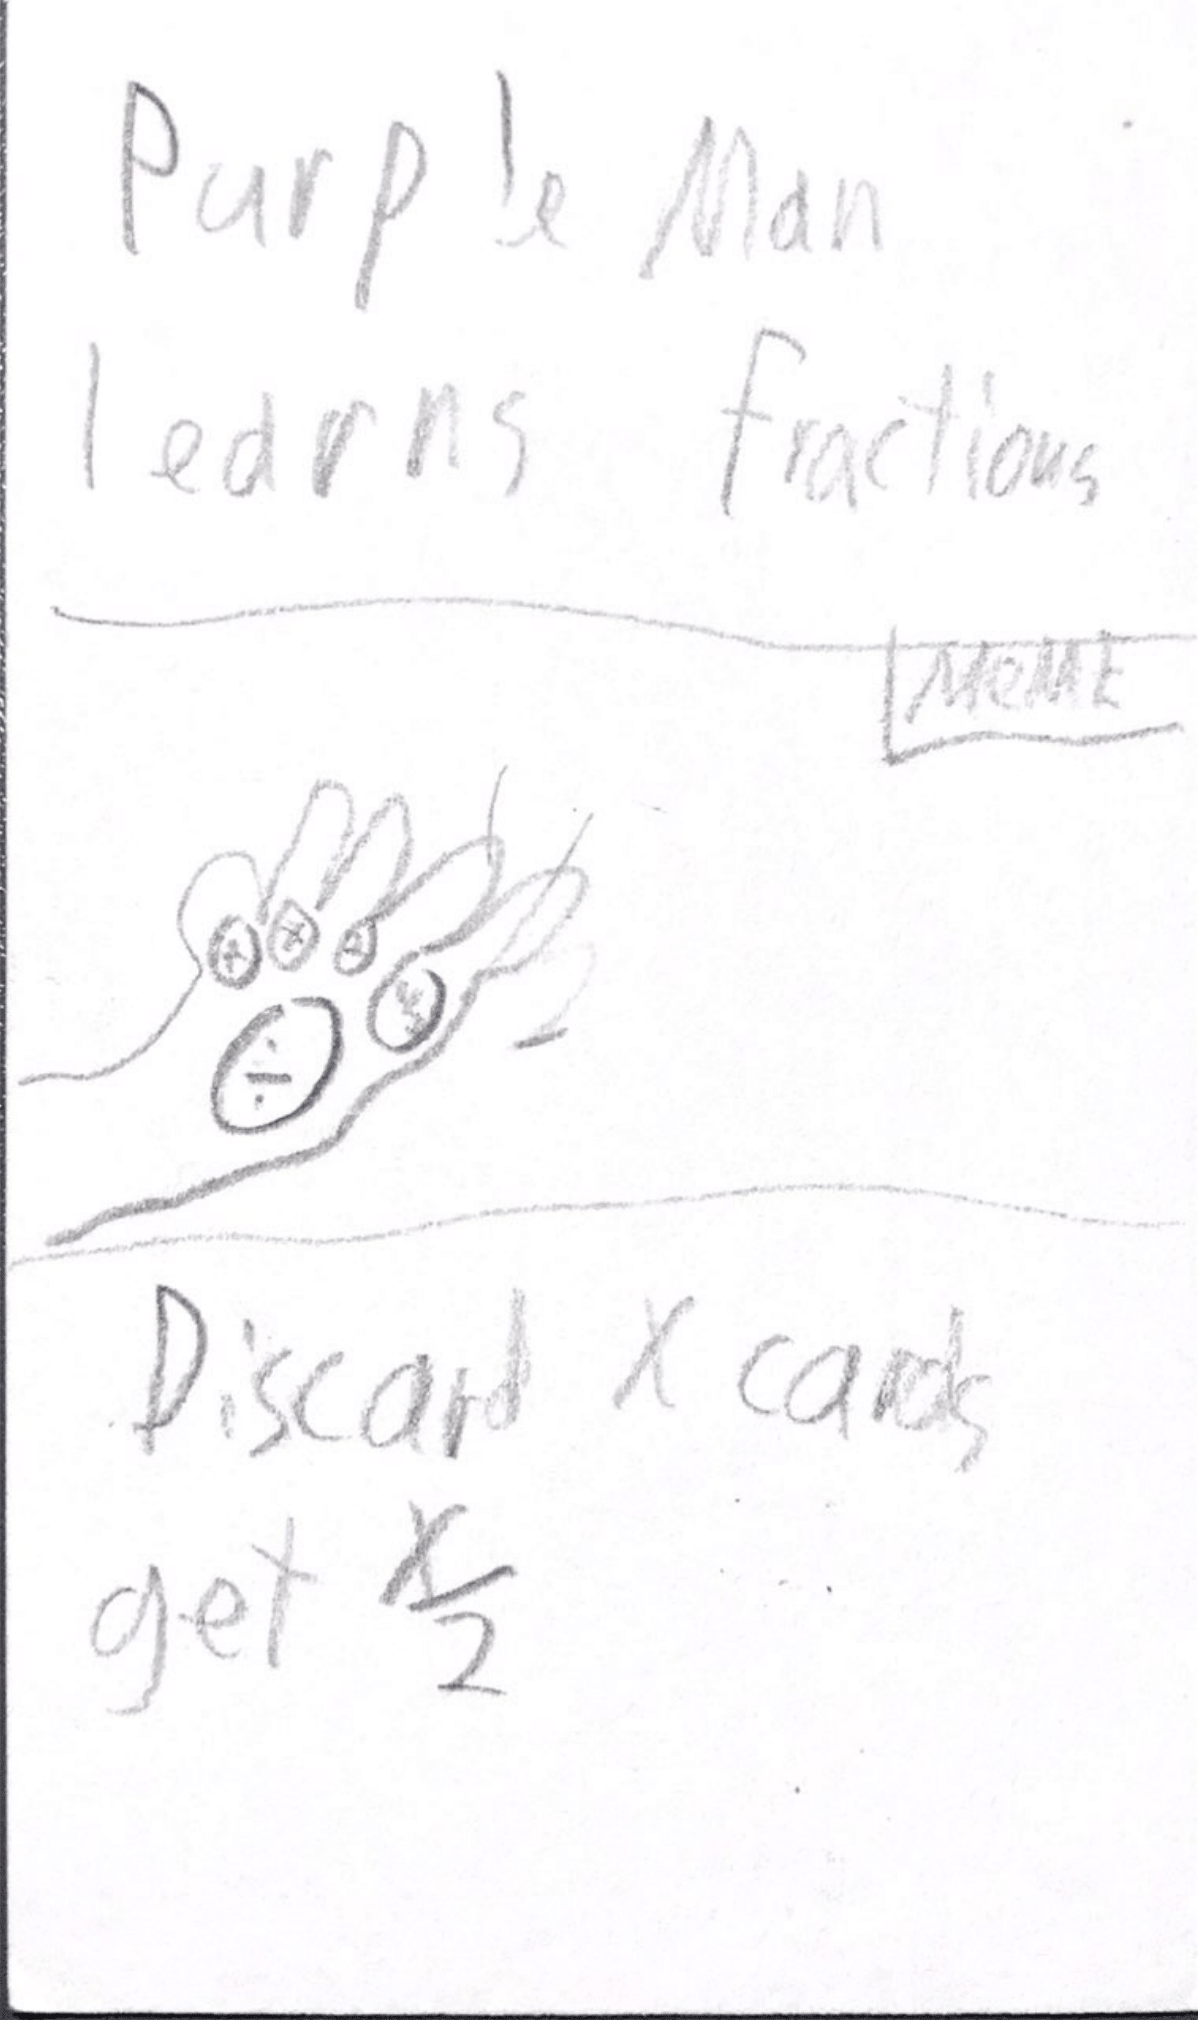 Purple Man
learns fractions
MEME
+ × - %
÷
Discard X cards
get X/2